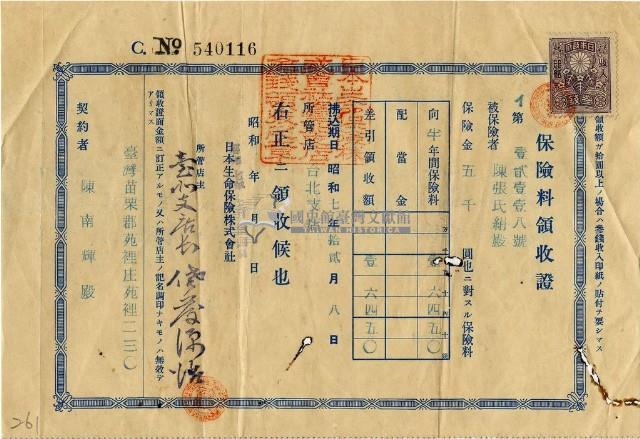 C. No 540116
領收額が拾圓以上ノ場合ハ參錢收入印紙ノ貼付ヲ要シマス
保險料領收證
イ第壹貳壹壹八號
被保險者 陳張氏絹殿
保險金五千圓也ニ對スル保險料
向半年間保險料 壹六四五〇
配當金
差引領收額 壹六四五〇
拂込期日 昭和七年拾貳月八日
所管店 台北支店
右正ニ領收候也
昭和 年 月 日
日本生命保險株式會社
所管店主
臺北支店長
領收證面金額ニ訂正アルモノ又ハ所管店主ノ記名調印ナキモノハ無效デアリマス
臺灣苗栗郡苑裡庄苑裡二三〇
契約者 陳南輝殿
國史館臺灣文獻館
TAIWAN HISTORICA
261